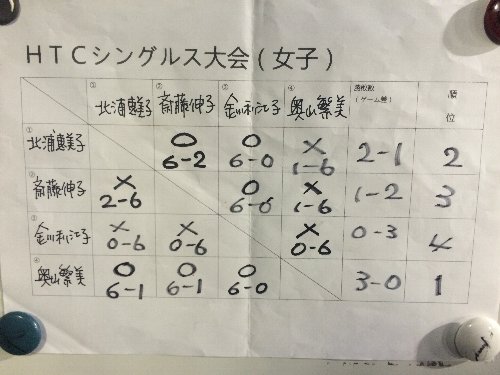 HTCシングルス大会(女子)
① ② ③ ④ 勝敗数 順
北浦恵美子 斎藤伸子 金川利江子 奥山繁美 (ゲーム差) 位
① 北浦恵美子 ○ ○ × 2-1 2
6-2 6-0 1-6
② 斎藤伸子 × ○ × 1-2 3
2-6 6-0 1-6
③ 金川利江子 × × × 0-3 4
0-6 0-6 0-6
④ 奥山繁美 ○ ○ ○ 3-0 1
6-1 6-1 6-0